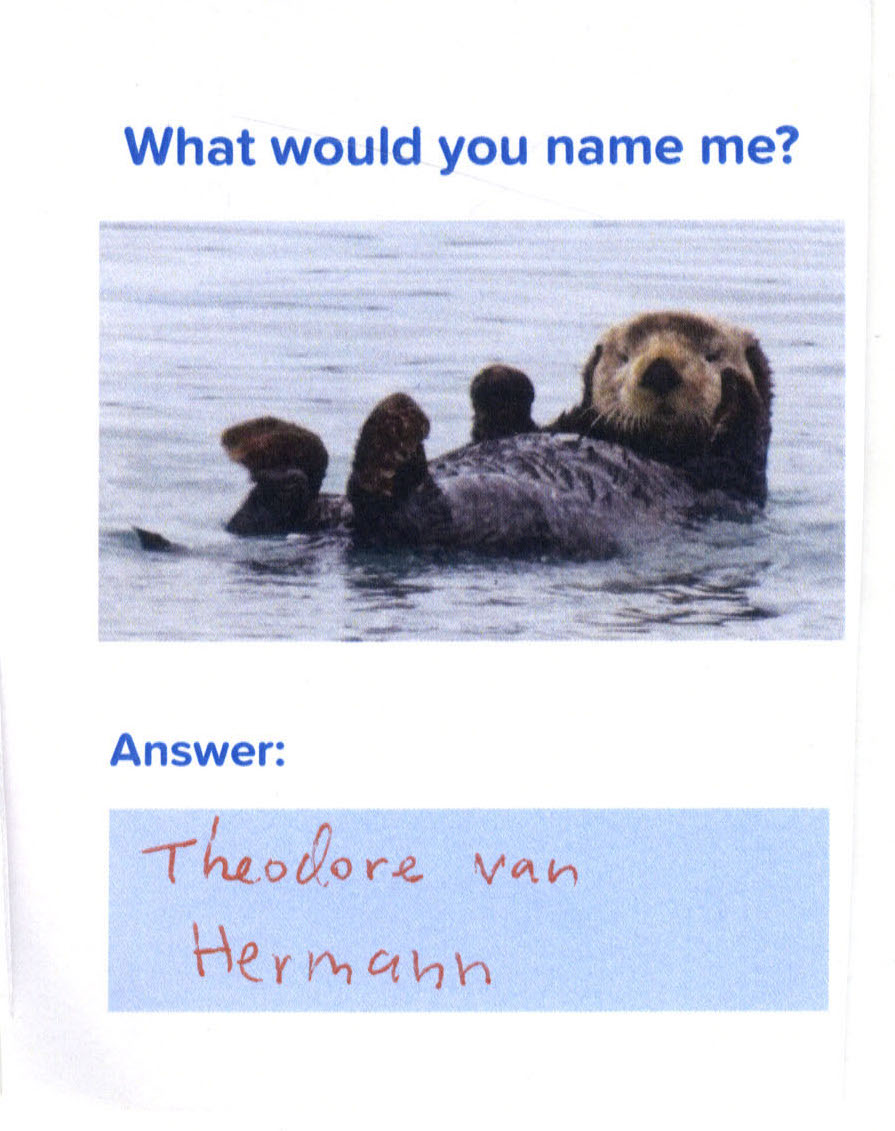 What would you name me?
Answer:
Theodore van
Hermann